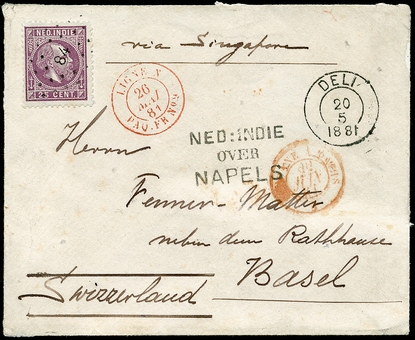 NED. INDIE
84
25 CENT.
via Singapore
LIGNE N
26 MAI 81
PAQ. FR. No 9
DELI
20
5
1881
NED: INDIE
OVER
NAPELS
Herrn
Fenner-Matter
neben dem Rathhause
Basel
Swizzerland